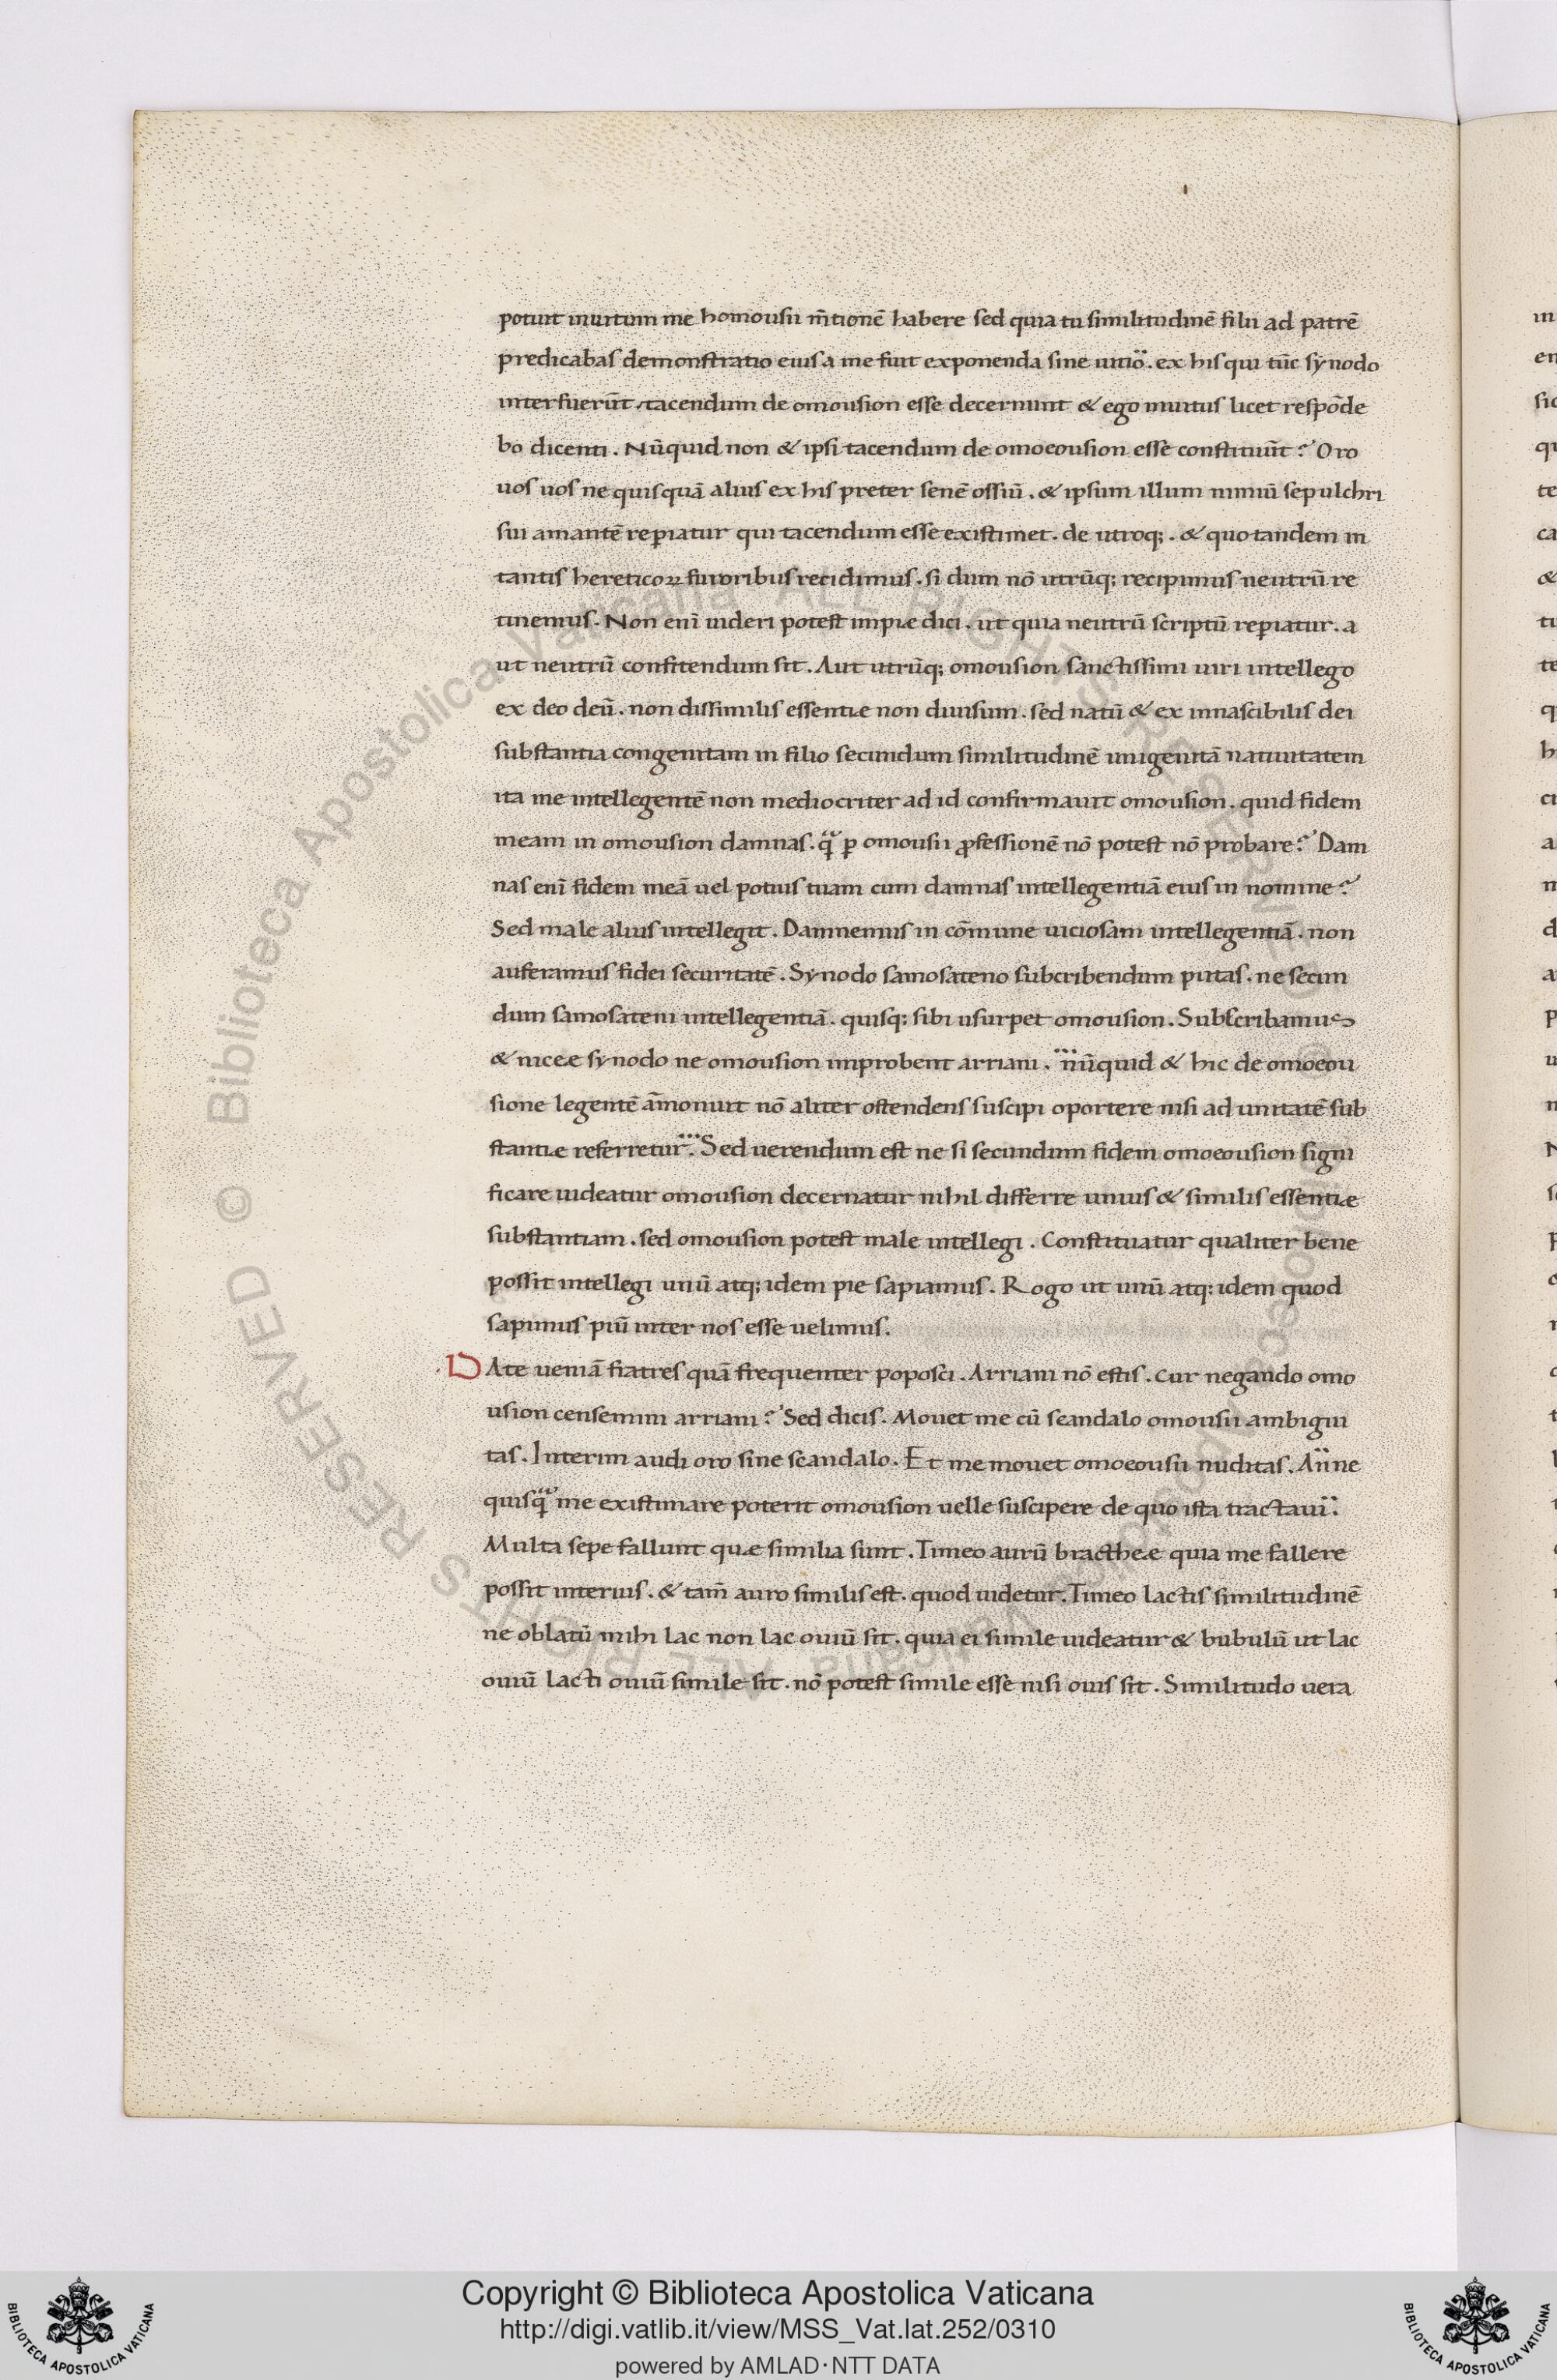 potuit inuitum me homousii m̄tionē habere sed quia tu similitudinē filii ad patrē
predicabas demonstratio eius a me fuit exponenda sine uitio. ex his qui tūc synodo
interfuerūt tacendum de omousion esse decernunt & ego inuitus licet respōde
bo dicenti. Nūquid non & ipsi tacendum de omoeousion esse constituūt? Oro
uos uos ne quisquā alius ex his preter senē ossiū. & ipsum illum nimiū sepulchri
sui amantē reperiatur qui tacendum esse existimet. de utroq;. & quo tandem in
tantis hereticoꝝ furoribus recidimus. si dum nō utrūq; recipimus neutrū re
tinemus. Non enī uideri potest impie dici. ut quia neutrū scriptū reperiatur. a
ut neutrū confitendum sit. Aut utrūq; omousion sanctissimi uiri intellego
ex deo deū. non dissimilis essentiæ non diuisum. sed natū & ex innascibilis dei
substantia congenitam in filio secundum similitudinē unigenitā natiuitatem
ita me intellegentē non mediocriter ad id confirmauit omousion. quid fidem
meam in omousion damnas. qᷓ ꝑ omousii ꝓfessionē nō potest nō probare? Dam
nas enī fidem meā uel potius tuam cum damnas intellegentiā eius in nomine?
Sed male alius intellegit. Damnemus in cōmune uiciosam intellegentiā. non
auferamus fidei securitatē. Synodo samosateno subcribendum putas. ne secun
dum samosateni intellegentiā. quisq; sibi usurpet omousion. Subscribamus
& niceæ synodo ne omousion improbent arriani. nūquid & hic de omoeou
sione legentē āmonuit nō aliter ostendens suscipi oportere nisi ad unitatē sub
stantiæ referretur. Sed uerendum est ne si secundum fidem omoeousion signi
ficare uideatur omousion decernatur nihil differre unius & similis essentiæ
substantiam. sed omousion potest male intellegi. Constituatur qualiter bene
possit intellegi unū atq; idem pie sapiamus. Rogo ut unū atq; idem quod
sapimus piū inter nos esse uelimus.
DAte ueniā fratres quā frequenter poposci. Arriani nō estis. cur negando omo
usion censemini arriani? Sed dicis. Mouet me cū scandalo omousii ambigui
tas. Interim audi oro sine scandalo. Et me mouet omoeousii nuditas. Anne
quisqᷓ me existimare poterit omousion uelle suscipere de quo ista tractaui.
Multa sepe fallunt quæ similia sunt. Timeo aurū bractheæ quia me fallere
possit interius. & tam̄ auro similis est. quod uidetur. Timeo lactis similitudinē
ne oblatū mihi lac non lac ouiū sit. quia ei simile uideatur & bubulū ut lac
ouiū lacti ouiū simile sit. nō potest simile esse nisi ouis sit. Similitudo uera
© Biblioteca Apostolica Vaticana ALL RIGHTS RESERVED
Copyright © Biblioteca Apostolica Vaticana
http://digi.vatlib.it/view/MSS_Vat.lat.252/0310
powered by AMLAD·NTT DATA
BIBLIOTECA APOSTOLICA VATICANA
BIBLIOTECA APOSTOLICA VATICANA